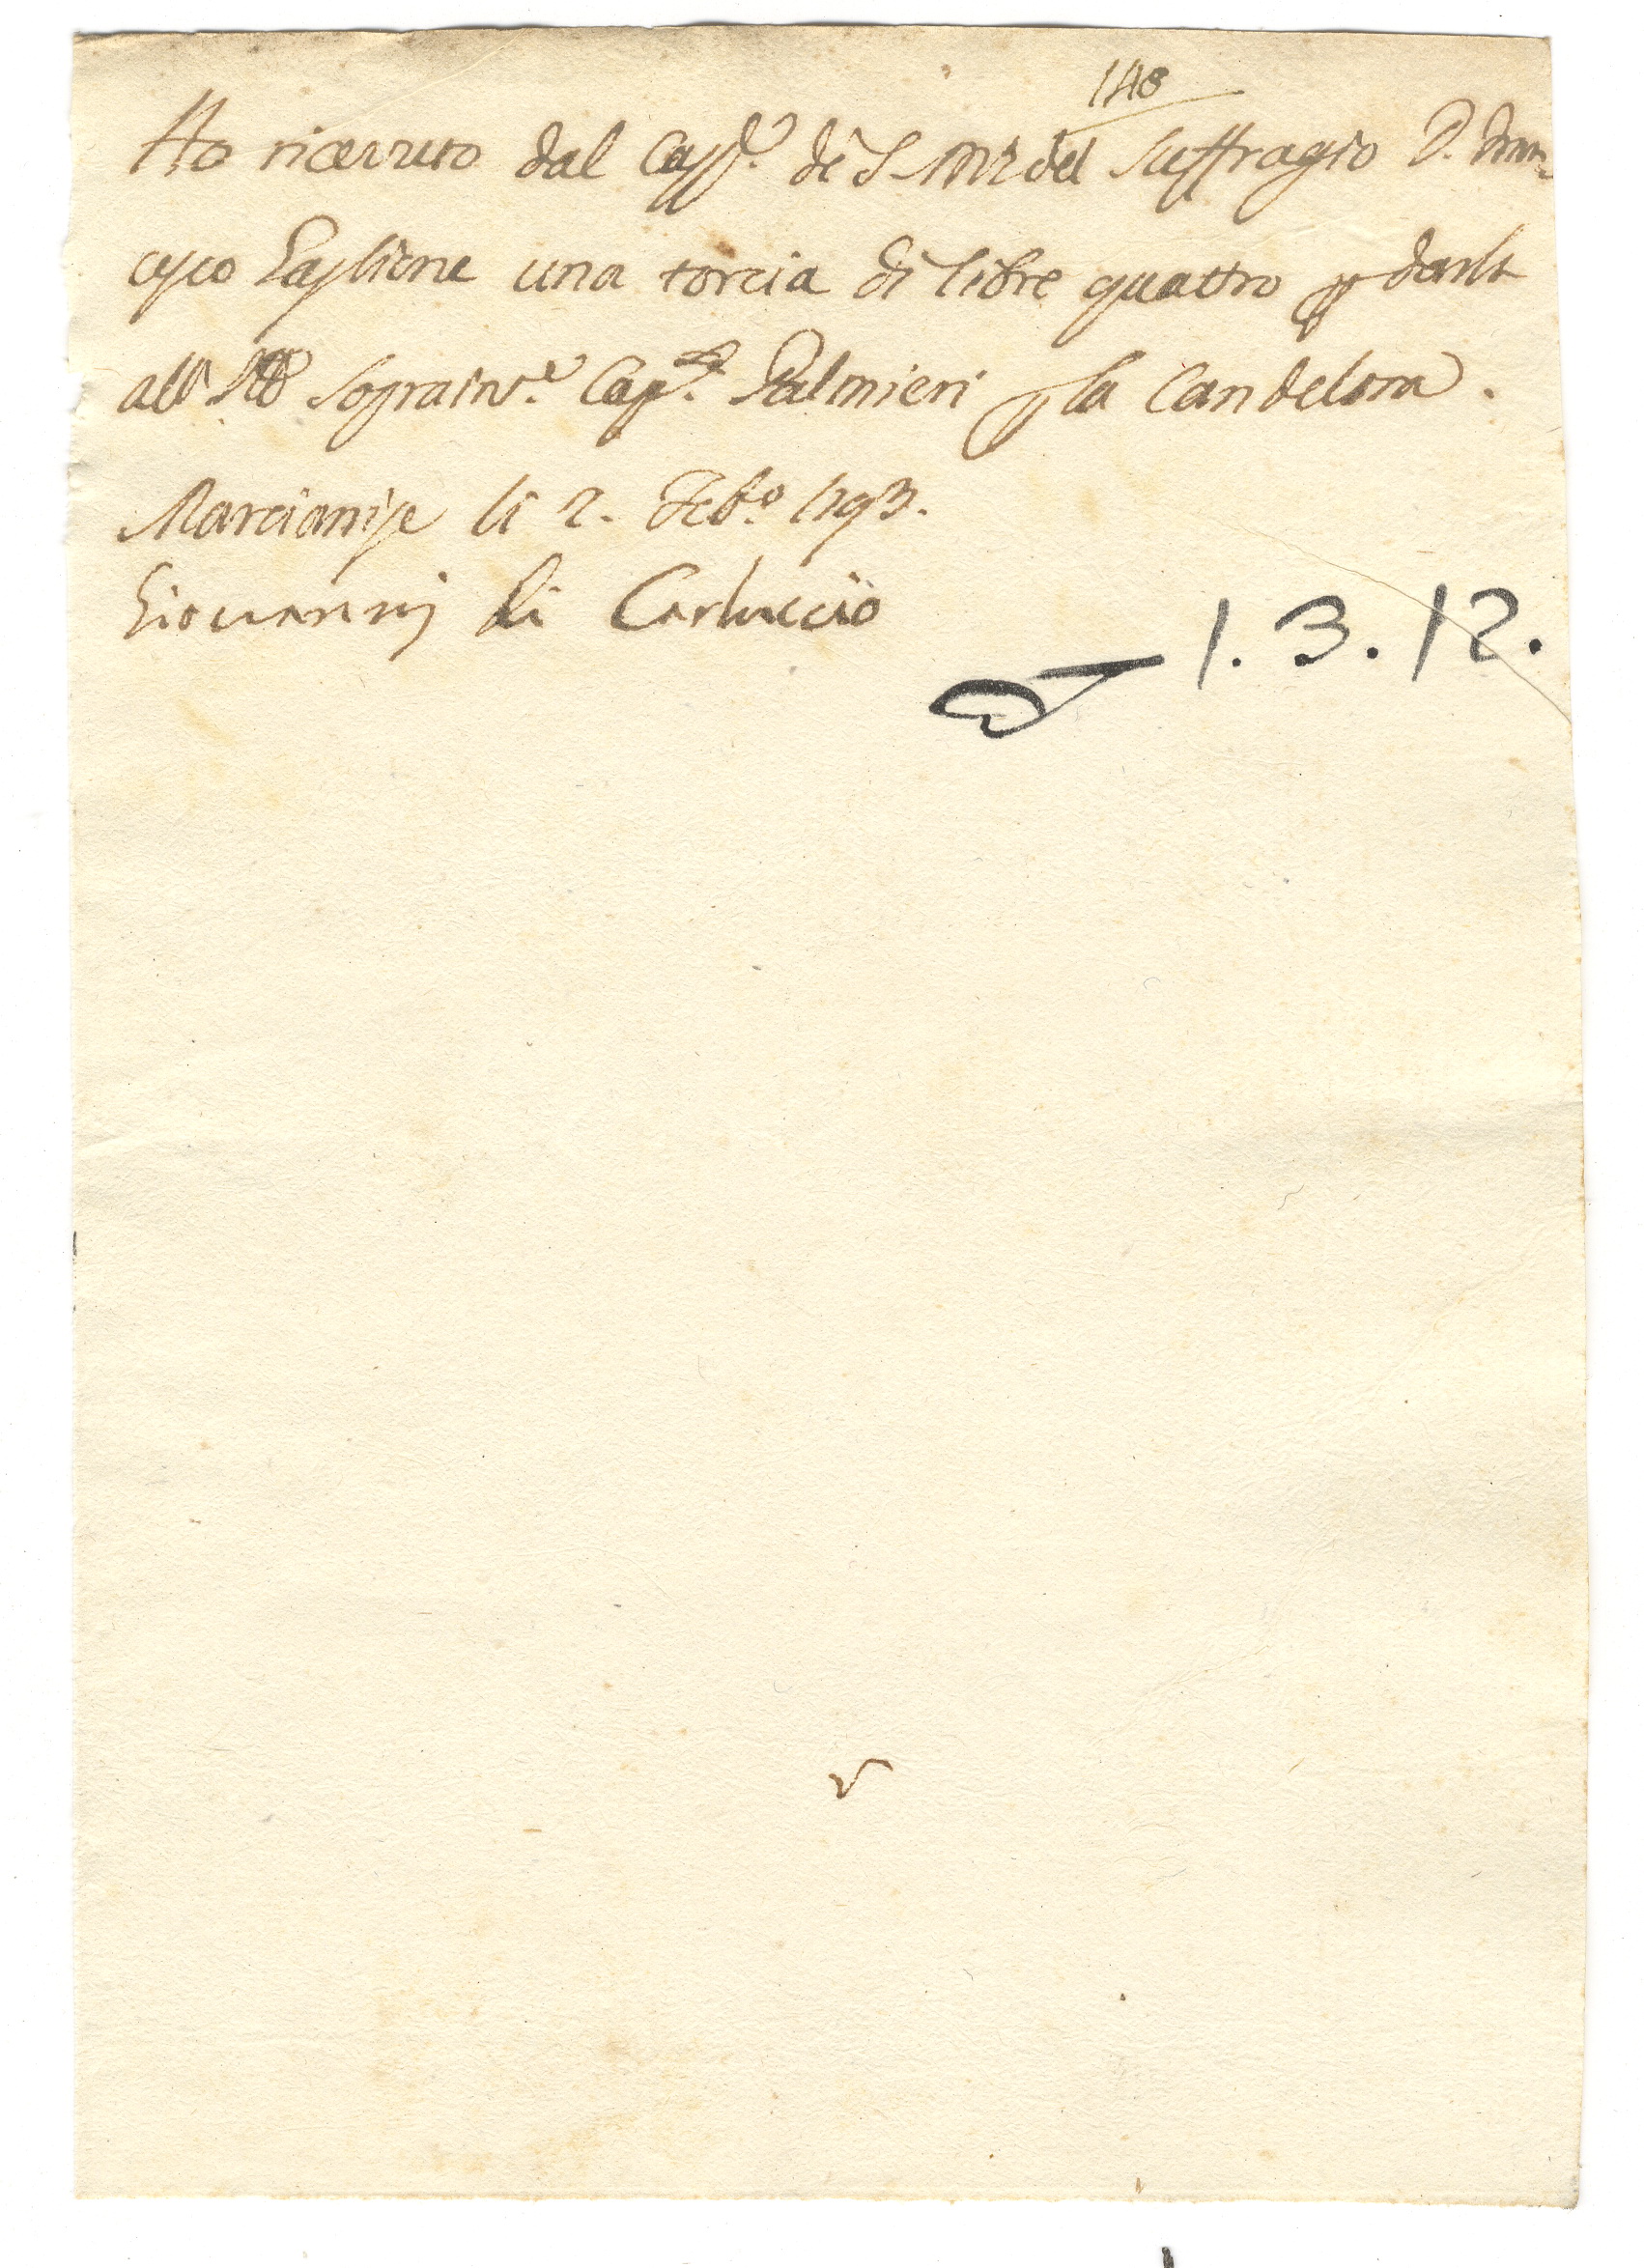 148
Ho ricevuto dal Capp.º di S Mª del Suffragio D. Fran-
cesco Taglione una torcia di libre quattro p darla
all' Ill Soprain.e Cap.º Palmieri p la Candelora.
Marcianise li 2. Feb.o 1793.
Giovanni di Carluccio
1.3.12.